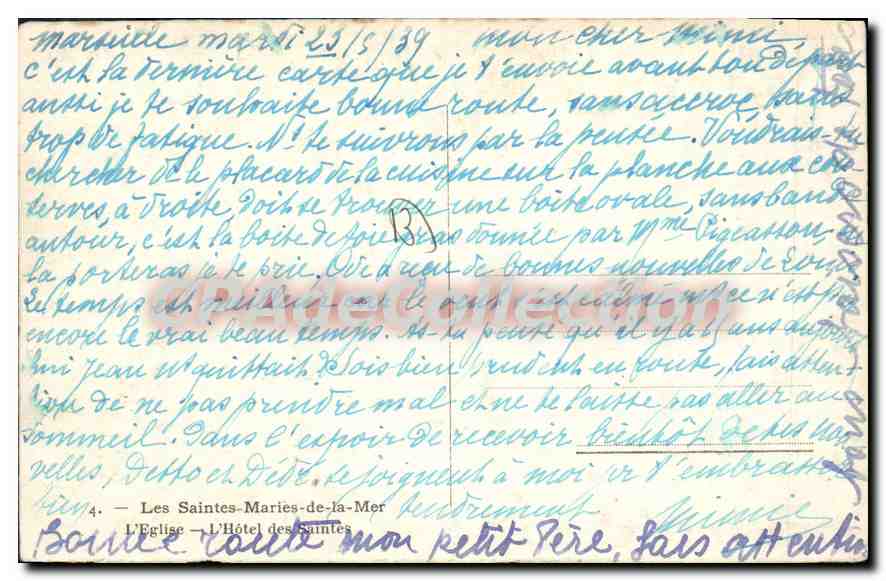 Marseille mardi 23/5/39 mon cher Mimi,
c'est la dernière carte que je t'envoie avant ton départ
aussi je te souhaite bonne route, sans accroc, sans
trop de fatigue. Ns te suivrons par la pensée. Voudrais-tu
chercher ds le placard de la cuisine sur la planche aux con-
serves, à droite, doit se trouver une boîte ovale, sans bande
autour, c'est la boîte de foie gras donnée par Mme Pigeasson,
la porteras je te prie. Dédé a eu de bonnes nouvelles de
Le temps est meilleur car le vent est calmé mais ce n'est pas
encore le vrai beau temps. As-tu pensé qu'il y a 5 ans aujourd'
hui Jean ns quittait? Sois bien prudent en route, fais atten-
tion de ne pas prendre mal et ne te laisse pas aller au
sommeil. Dans l'espoir de recevoir bientôt de tes nou-
velles, Detto et Dédé se joignent à moi pr t'embrasser
bien tendrement
4. — Les Saintes-Maries-de-la-Mer
L'Eglise — L'Hôtel des Saintes
Bonne route mon petit Père, fais attention
13
CPAdeCollection